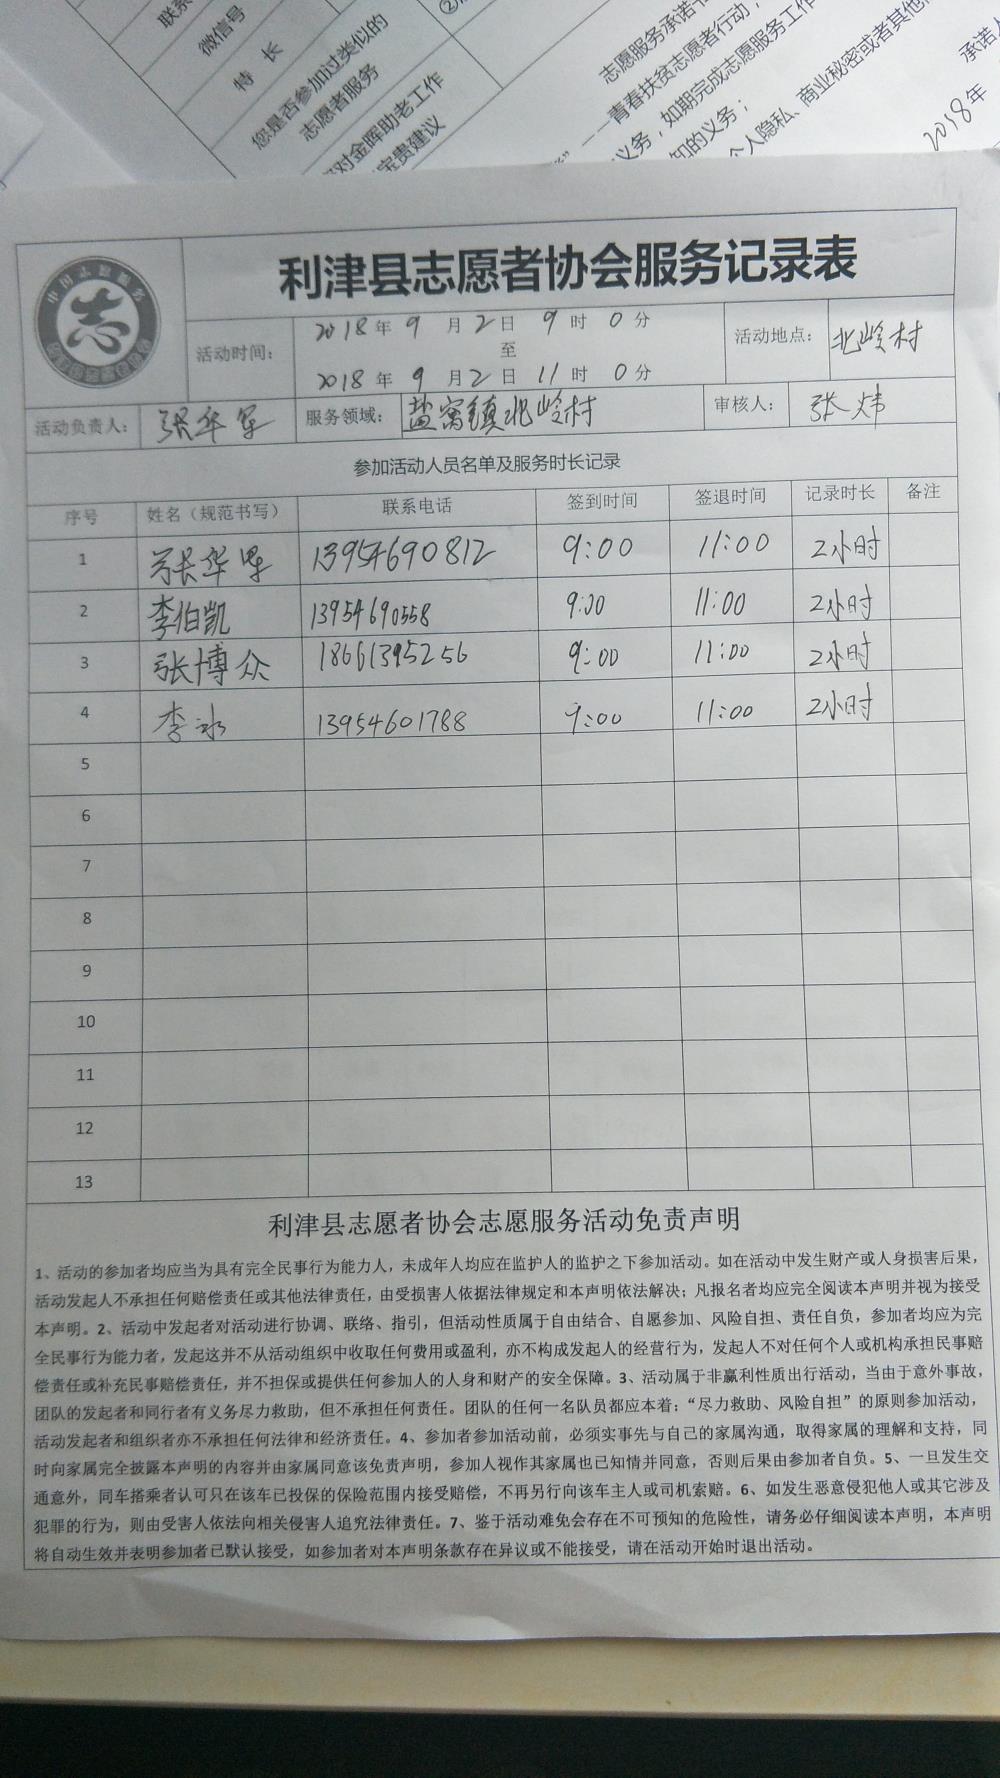 微信号
特 长
您是否参加过类似的
志愿者服务
对金晖助老工作
宝贵建议
志愿服务承诺书
——青春扶贫志愿者行动，
义务，如期完成志愿服务工作
知的义务；
个人隐私、商业秘密或者其他
承诺人
2018年
中国志愿服务
志
利津县志愿者协会服务记录表
活动时间：
2018年9月2日9时0分
至
2018年9月2日11时0分
活动地点：
北岭村
活动负责人：
张华军
服务领域：
盐窝镇北岭村
审核人：
张炜
参加活动人员名单及服务时长记录
序号 姓名（规范书写） 联系电话 签到时间 签退时间 记录时长 备注
1 张华军 13954690812 9:00 11:00 2小时
2 李伯凯 13954690558 9:00 11:00 2小时
3 张博众 18661395256 9:00 11:00 2小时
4 李冰 13954601788 9:00 11:00 2小时
5
6
7
8
9
10
11
12
13
利津县志愿者协会志愿服务活动免责声明
1、活动的参加者均应当为具有完全民事行为能力人，未成年人均应在监护人的监护之下参加活动。如在活动中发生财产或人身损害后果，
活动发起人不承担任何赔偿责任或其他法律责任，由受损害人依据法律规定和本声明依法解决；凡报名者均应完全阅读本声明并视为接受
本声明。2、活动中发起者对活动进行协调、联络、指引，但活动性质属于自由结合、自愿参加、风险自担、责任自负，参加者均应为完
全民事行为能力者，发起这并不从活动组织中收取任何费用或盈利，亦不构成发起人的经营行为，发起人不对任何个人或机构承担民事赔
偿责任或补充民事赔偿责任，并不担保或提供任何参加人的人身和财产的安全保障。3、活动属于非赢利性质出行活动，当由于意外事故，
团队的发起者和同行者有义务尽力救助，但不承担任何责任。团队的任何一名队员都应本着：“尽力救助、风险自担”的原则参加活动，
活动发起者和组织者亦不承担任何法律和经济责任。4、参加者参加活动前，必须实事先与自己的家属沟通，取得家属的理解和支持，同
时向家属完全披露本声明的内容并由家属同意该免责声明，参加人视作其家属也已知情并同意，否则后果由参加者自负。5、一旦发生交
通意外，同车搭乘者认可只在该车已投保的保险范围内接受赔偿，不再另行向该车主人或司机索赔。6、如发生恶意侵犯他人或其它涉及
犯罪的行为，则由受害人依法向相关侵害人追究法律责任。7、鉴于活动难免会存在不可预知的危险性，请务必仔细阅读本声明，本声明
将自动生效并表明参加者已默认接受，如参加者对本声明条款存在异议或不能接受，请在活动开始时退出活动。